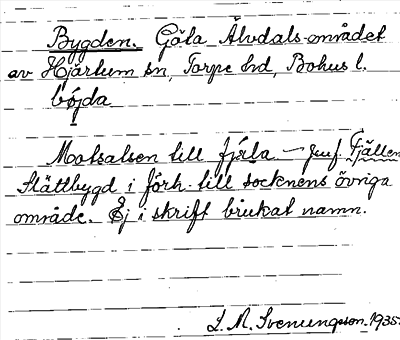 Bygden. Göta Älvdals-området
av Hjärtum sn, Torpe hd, Bohus l.
bö̱jda
Motsatsen till fjä̱la – jmf. Fjällen
Slättbygd i förh. till socknens övriga
område. Ej i skrift brukat namn.
L. M. Svenungsson. 1935.